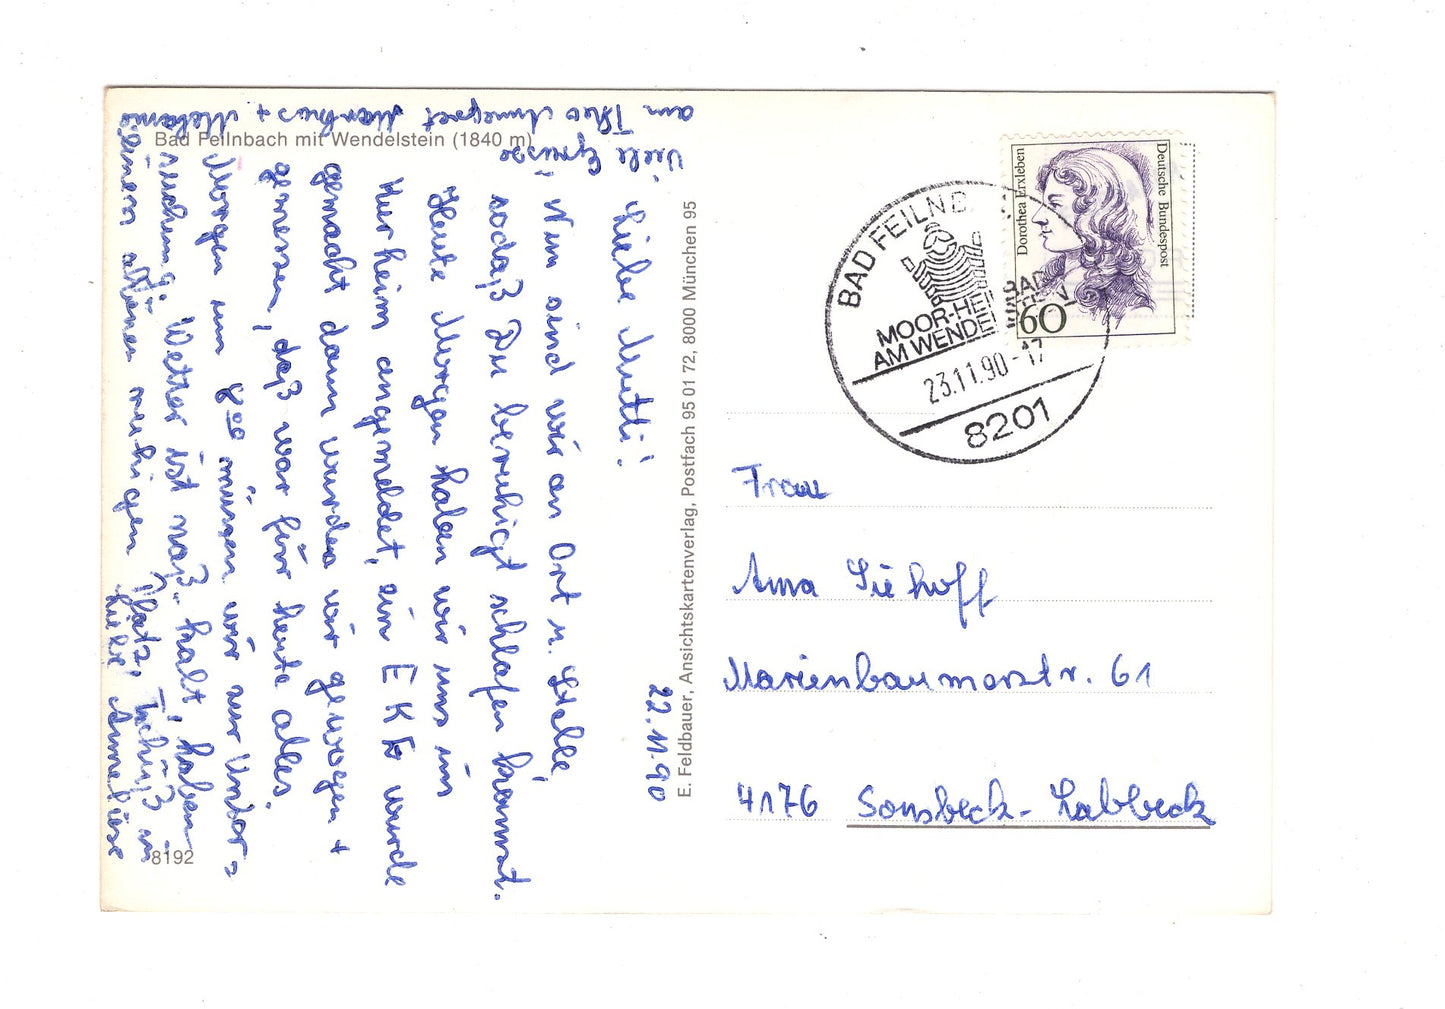 Bad Feilnbach mit Wendelstein (1840 m)
22.11.90
Liebe Mutti!
Nun sind wir an Ort u. Stelle,
sodaß Du beruhigt schlafen kannst.
Heute Morgen haben wir uns im
Kurheim angemeldet, ein EKG wurde
gemacht dann wurden wir gewogen +
gemessen, daß war für heute alles.
Morgen um 8 00 müssen wir zur Unter=
suchung. Wetter ist naß-kalt, haben
einen schönen ruhigen Platz. Tschüß in
Liebe Anneliese
Viele Grüsse
an Theo Annegret Markus + Melanie
8192
E. Feldbauer, Ansichtskartenverlag, Postfach 95 01 72, 8000 München 95
Deutsche Bundespost
Dorothea Erxleben
60
BAD FEILNB
MOOR-HEI
AM WENDE
23.11.90-17
8201
Frau
Anna Siehoff
Marienbaumerstr. 61
4176 Sonsbeck-Labbeck